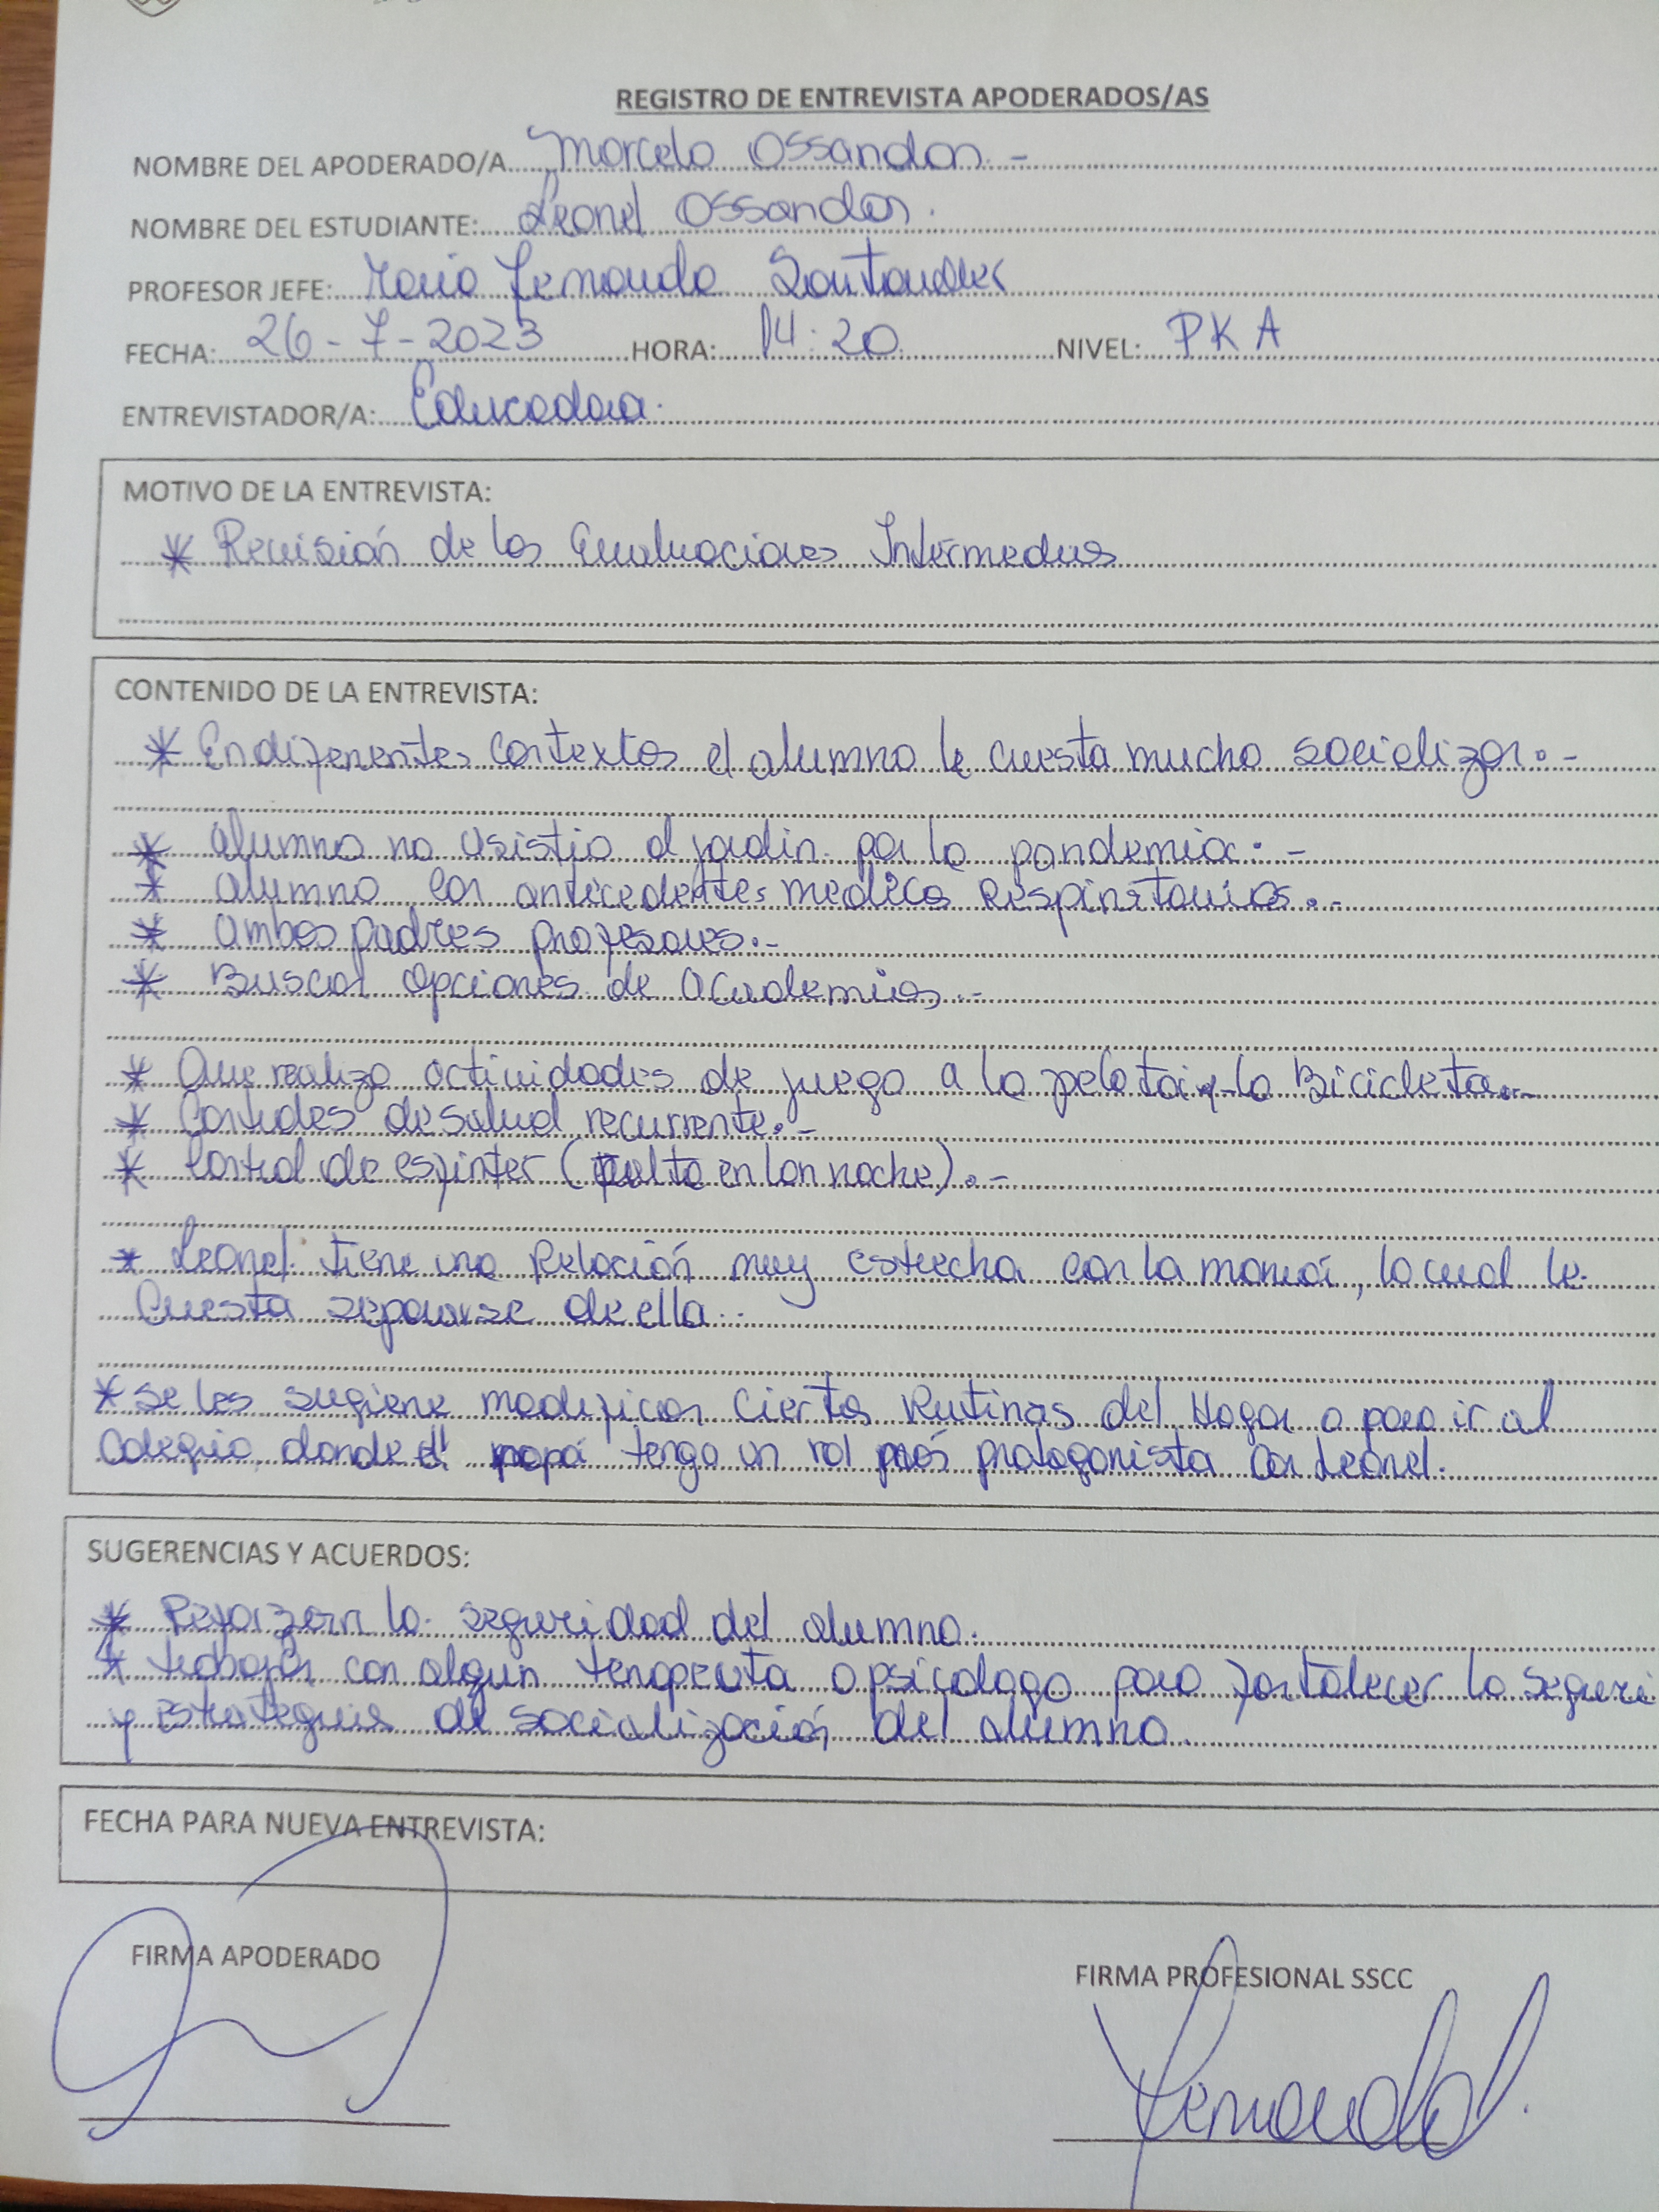 REGISTRO DE ENTREVISTA APODERADOS/AS
NOMBRE DEL APODERADO/A Marcelo Ossandon. -
NOMBRE DEL ESTUDIANTE: Leonel Ossandon.
PROFESOR JEFE: Maria Fernanda Santander
FECHA: 26-7-2023 HORA: 14:20 NIVEL: PKA
ENTREVISTADOR/A: Educadora.
MOTIVO DE LA ENTREVISTA:
* Revisión de las Evaluaciones Intermedias
CONTENIDO DE LA ENTREVISTA:
* En diferentes contextos el alumno le cuesta mucho socializar. -
* alumno no asistio al jardin por la pandemia. -
* alumno con anticedentes medicos Respiratorios. -
* ambos padres profesores. -
* Buscar opciones de academias. -
* Que realiza actividades de juego a la pelota y la Bicicleta. -
* Controles de salud recurrente. -
* Control de esfinter (falta en lan noche). -
* Leonel tiene una Relación muy estrecha con la mamá, lo cual le
Cuesta separarse de ella.
* Se les sugiere modificar ciertas Rutinas del Hogar o para ir al
Colegio donde el papá tenga un rol más protagonista con Leonel.
SUGERENCIAS Y ACUERDOS:
* Reforzar la seguridad del alumno.
* trabajar con algun terapeuta o psicologo para fortalecer la seguri
y estrategias de socialización del alumno.
FECHA PARA NUEVA ENTREVISTA:
FIRMA APODERADO
FIRMA PROFESIONAL SSCC